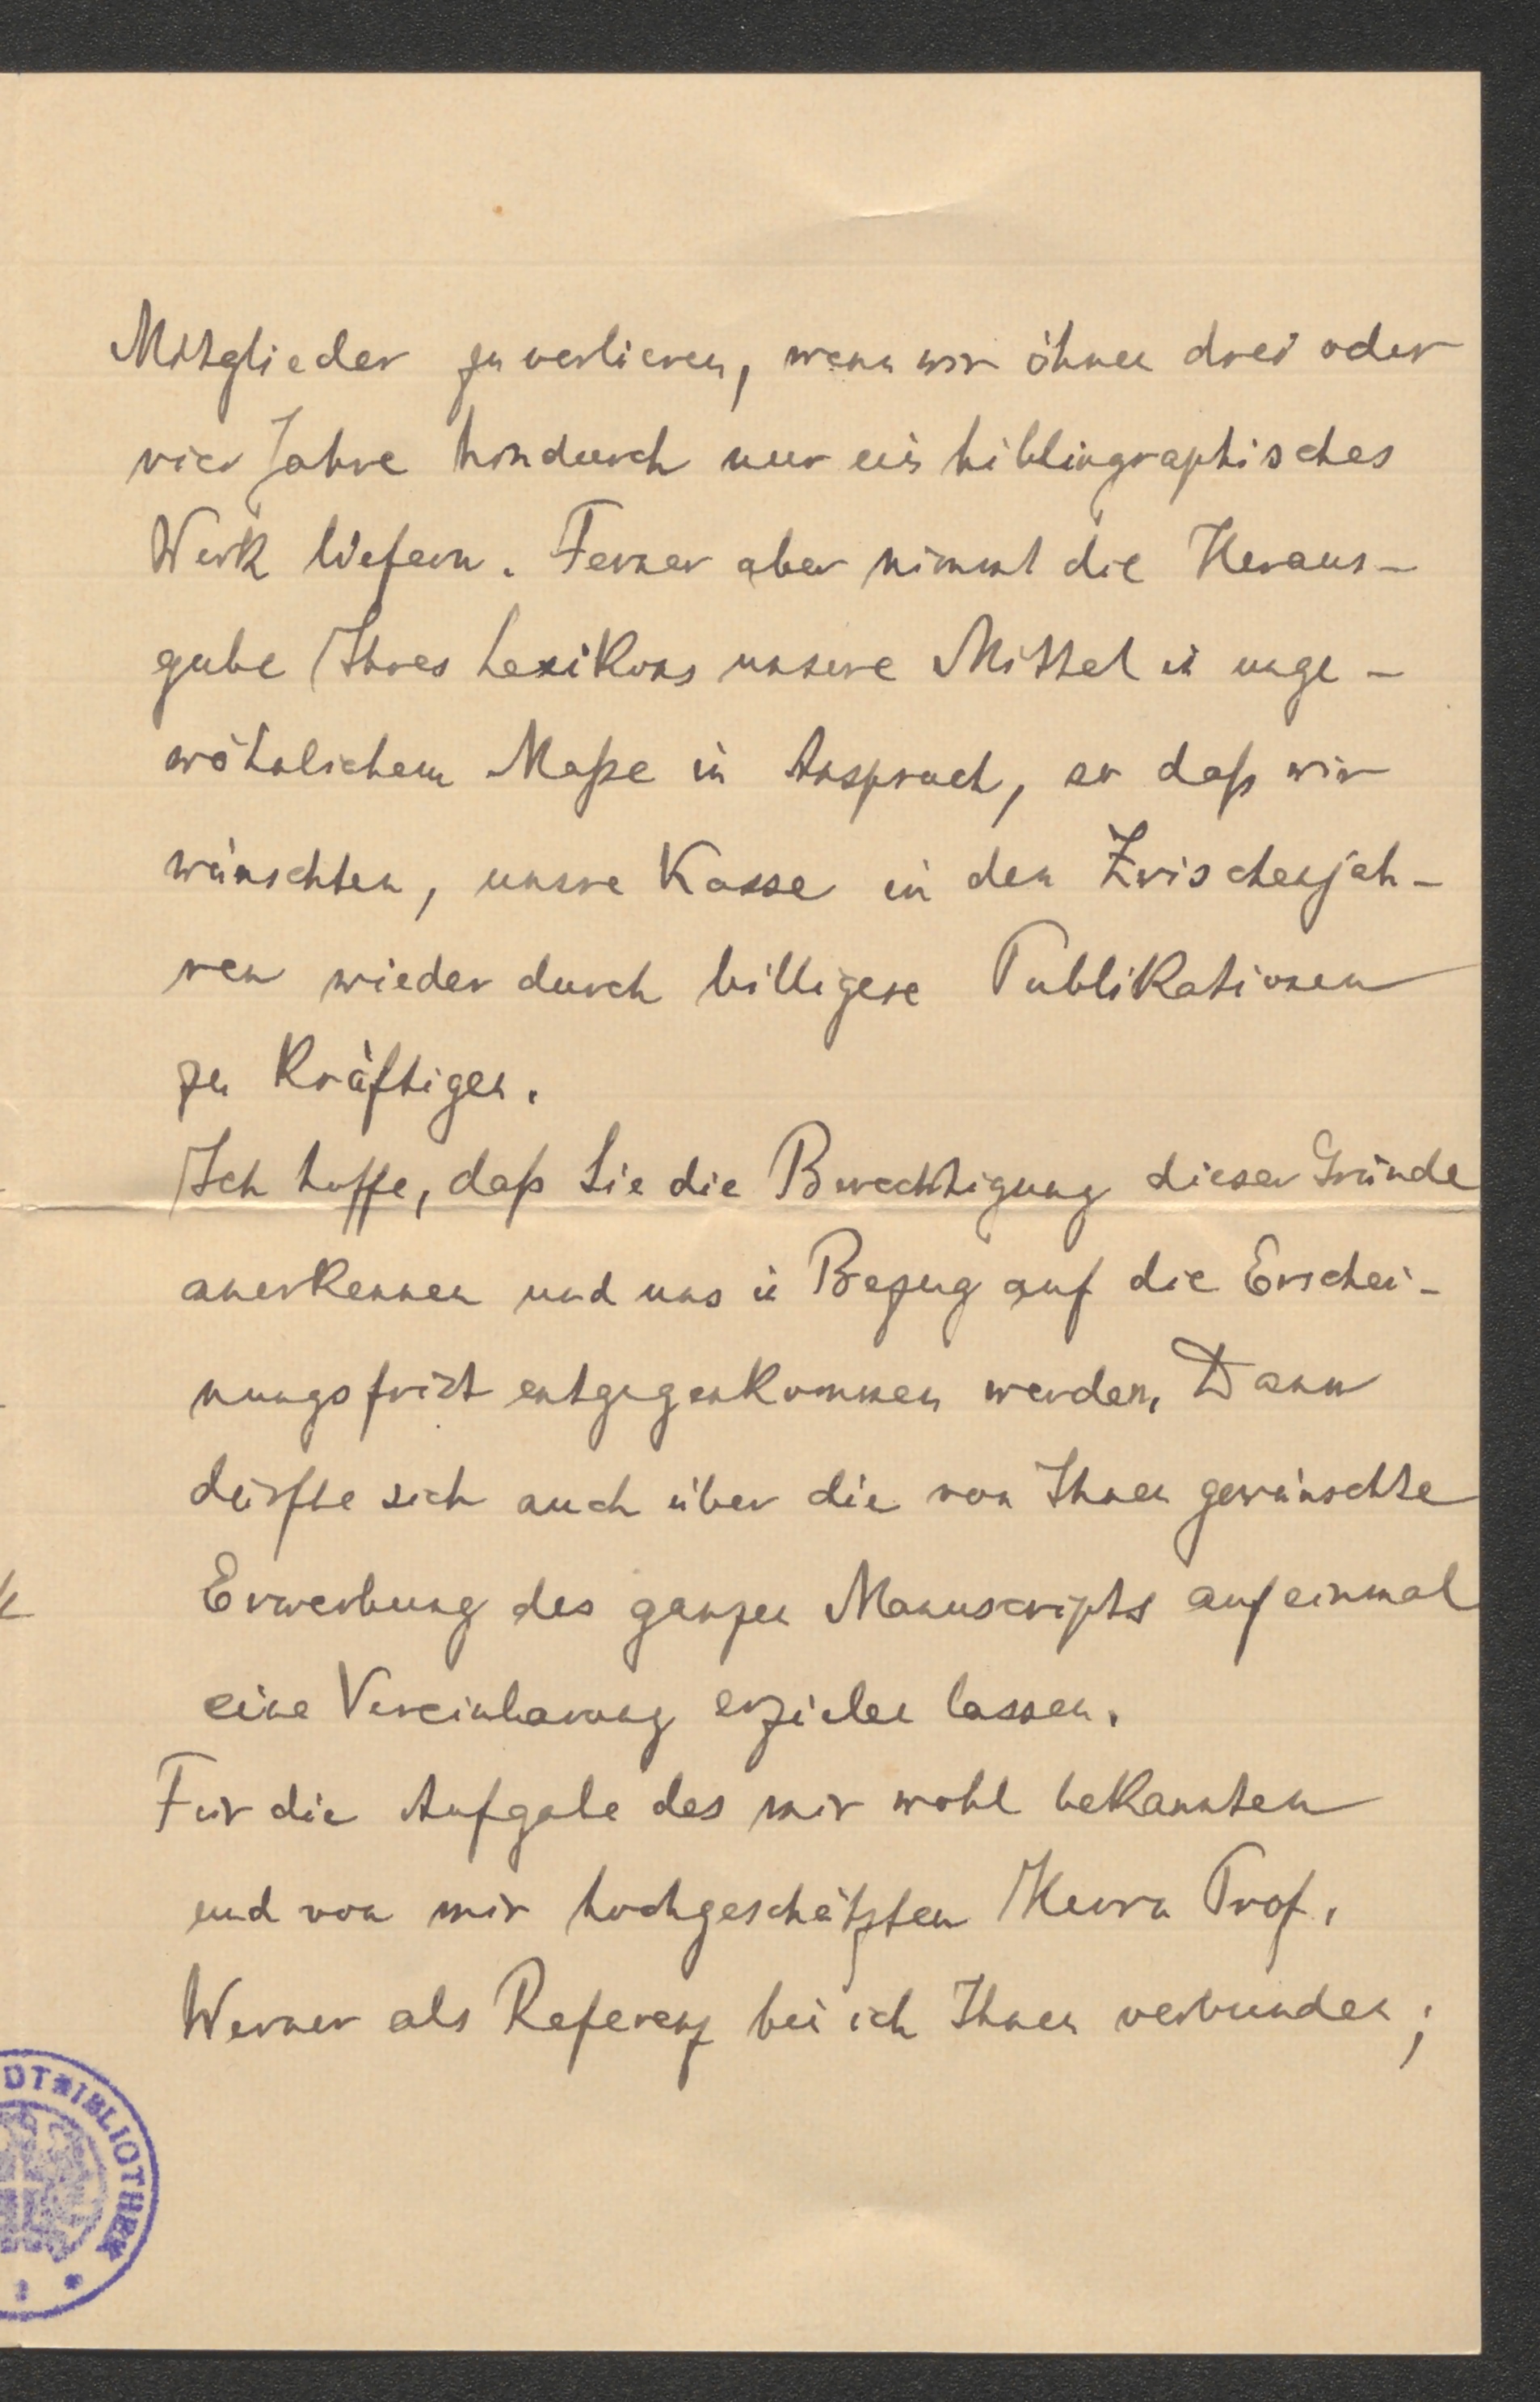 Mitglieder zu verlieren, wenn wir ihnen drei oder
vier Jahre hindurch nur ein bibliographisches
Werk liefern. Ferner aber nimmt die Heraus-
gabe Ihres Lexikons unsere Mittel in unge-
wöhnlichem Maße in Anspruch, so daß wir
wünschten, unsre Kasse in den Zwischenjah-
ren wieder durch billigere Publikationen
zu kräftigen.
Ich hoffe, daß Sie die Berechtigung dieser Gründe
anerkennen und uns in Bezug auf die Erschei-
nungsfrist entgegenkommen werden. Dann
dürfte sich auch über die von Ihnen gewünschte
Erwerbung des ganzen Manuscripts auf einmal
eine Vereinbarung erzielen lassen.
Für die Aufgabe des mir wohl bekannten
und von mir hochgeschätzten Herrn Prof.
Werner als Referenz bin ich Ihnen verbunden;
DTBIBLIOTHEK